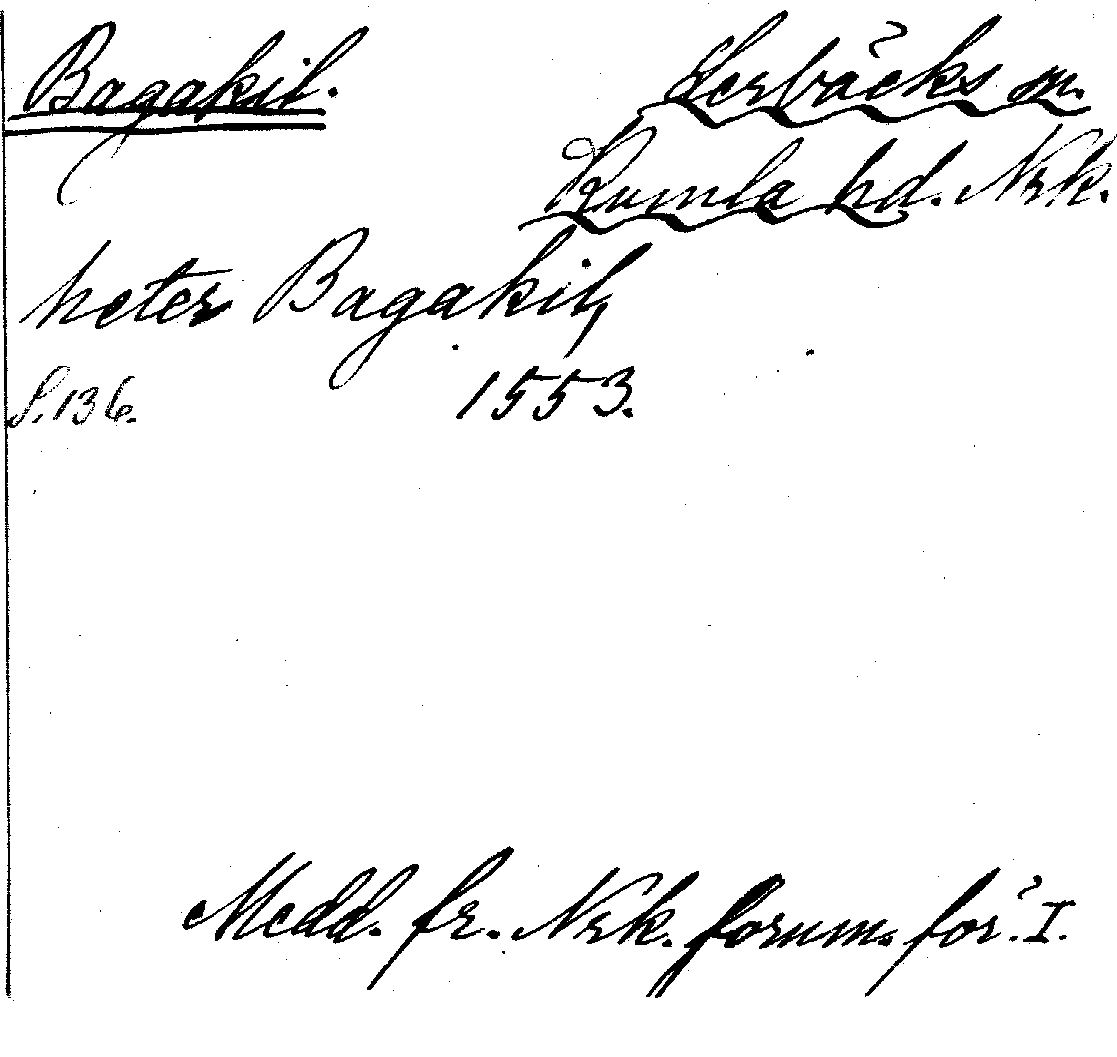 Bagakil.
Lerbäcks sn.
Kumla hd. Nrk.
heter Bagakil,
S. 136.
1553.
Medd. fr. Nrk. fornm. för. I.